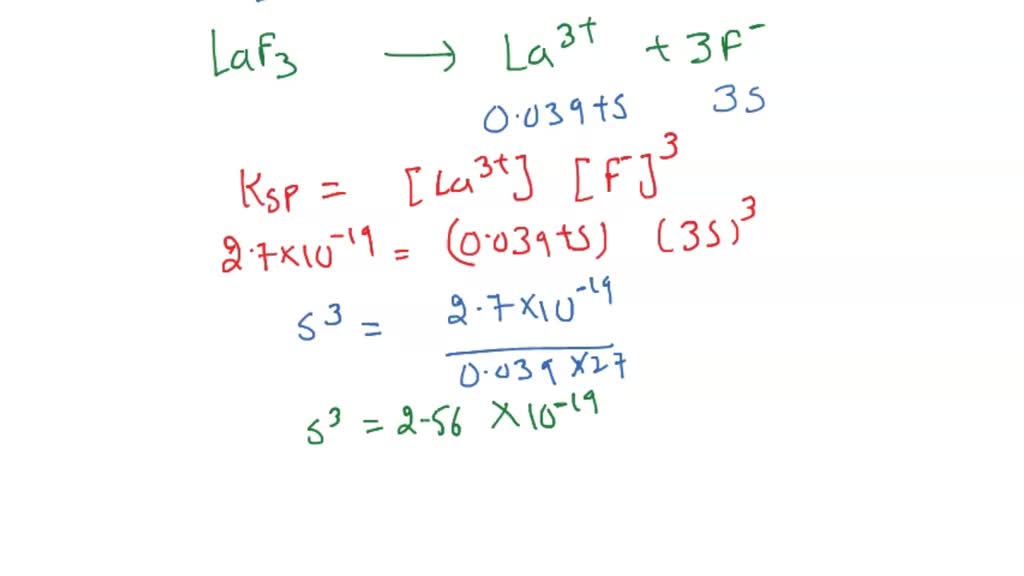 LaF₃ → La³⁺ + 3F⁻
0.039+s 3s
Ksp = [La³⁺] [F⁻]³
2.7×10⁻¹⁹ = (0.039+s) (3s)³
s³ = 2.7×10⁻¹⁹ / 0.039×27
s³ = 2.56 × 10⁻¹⁹